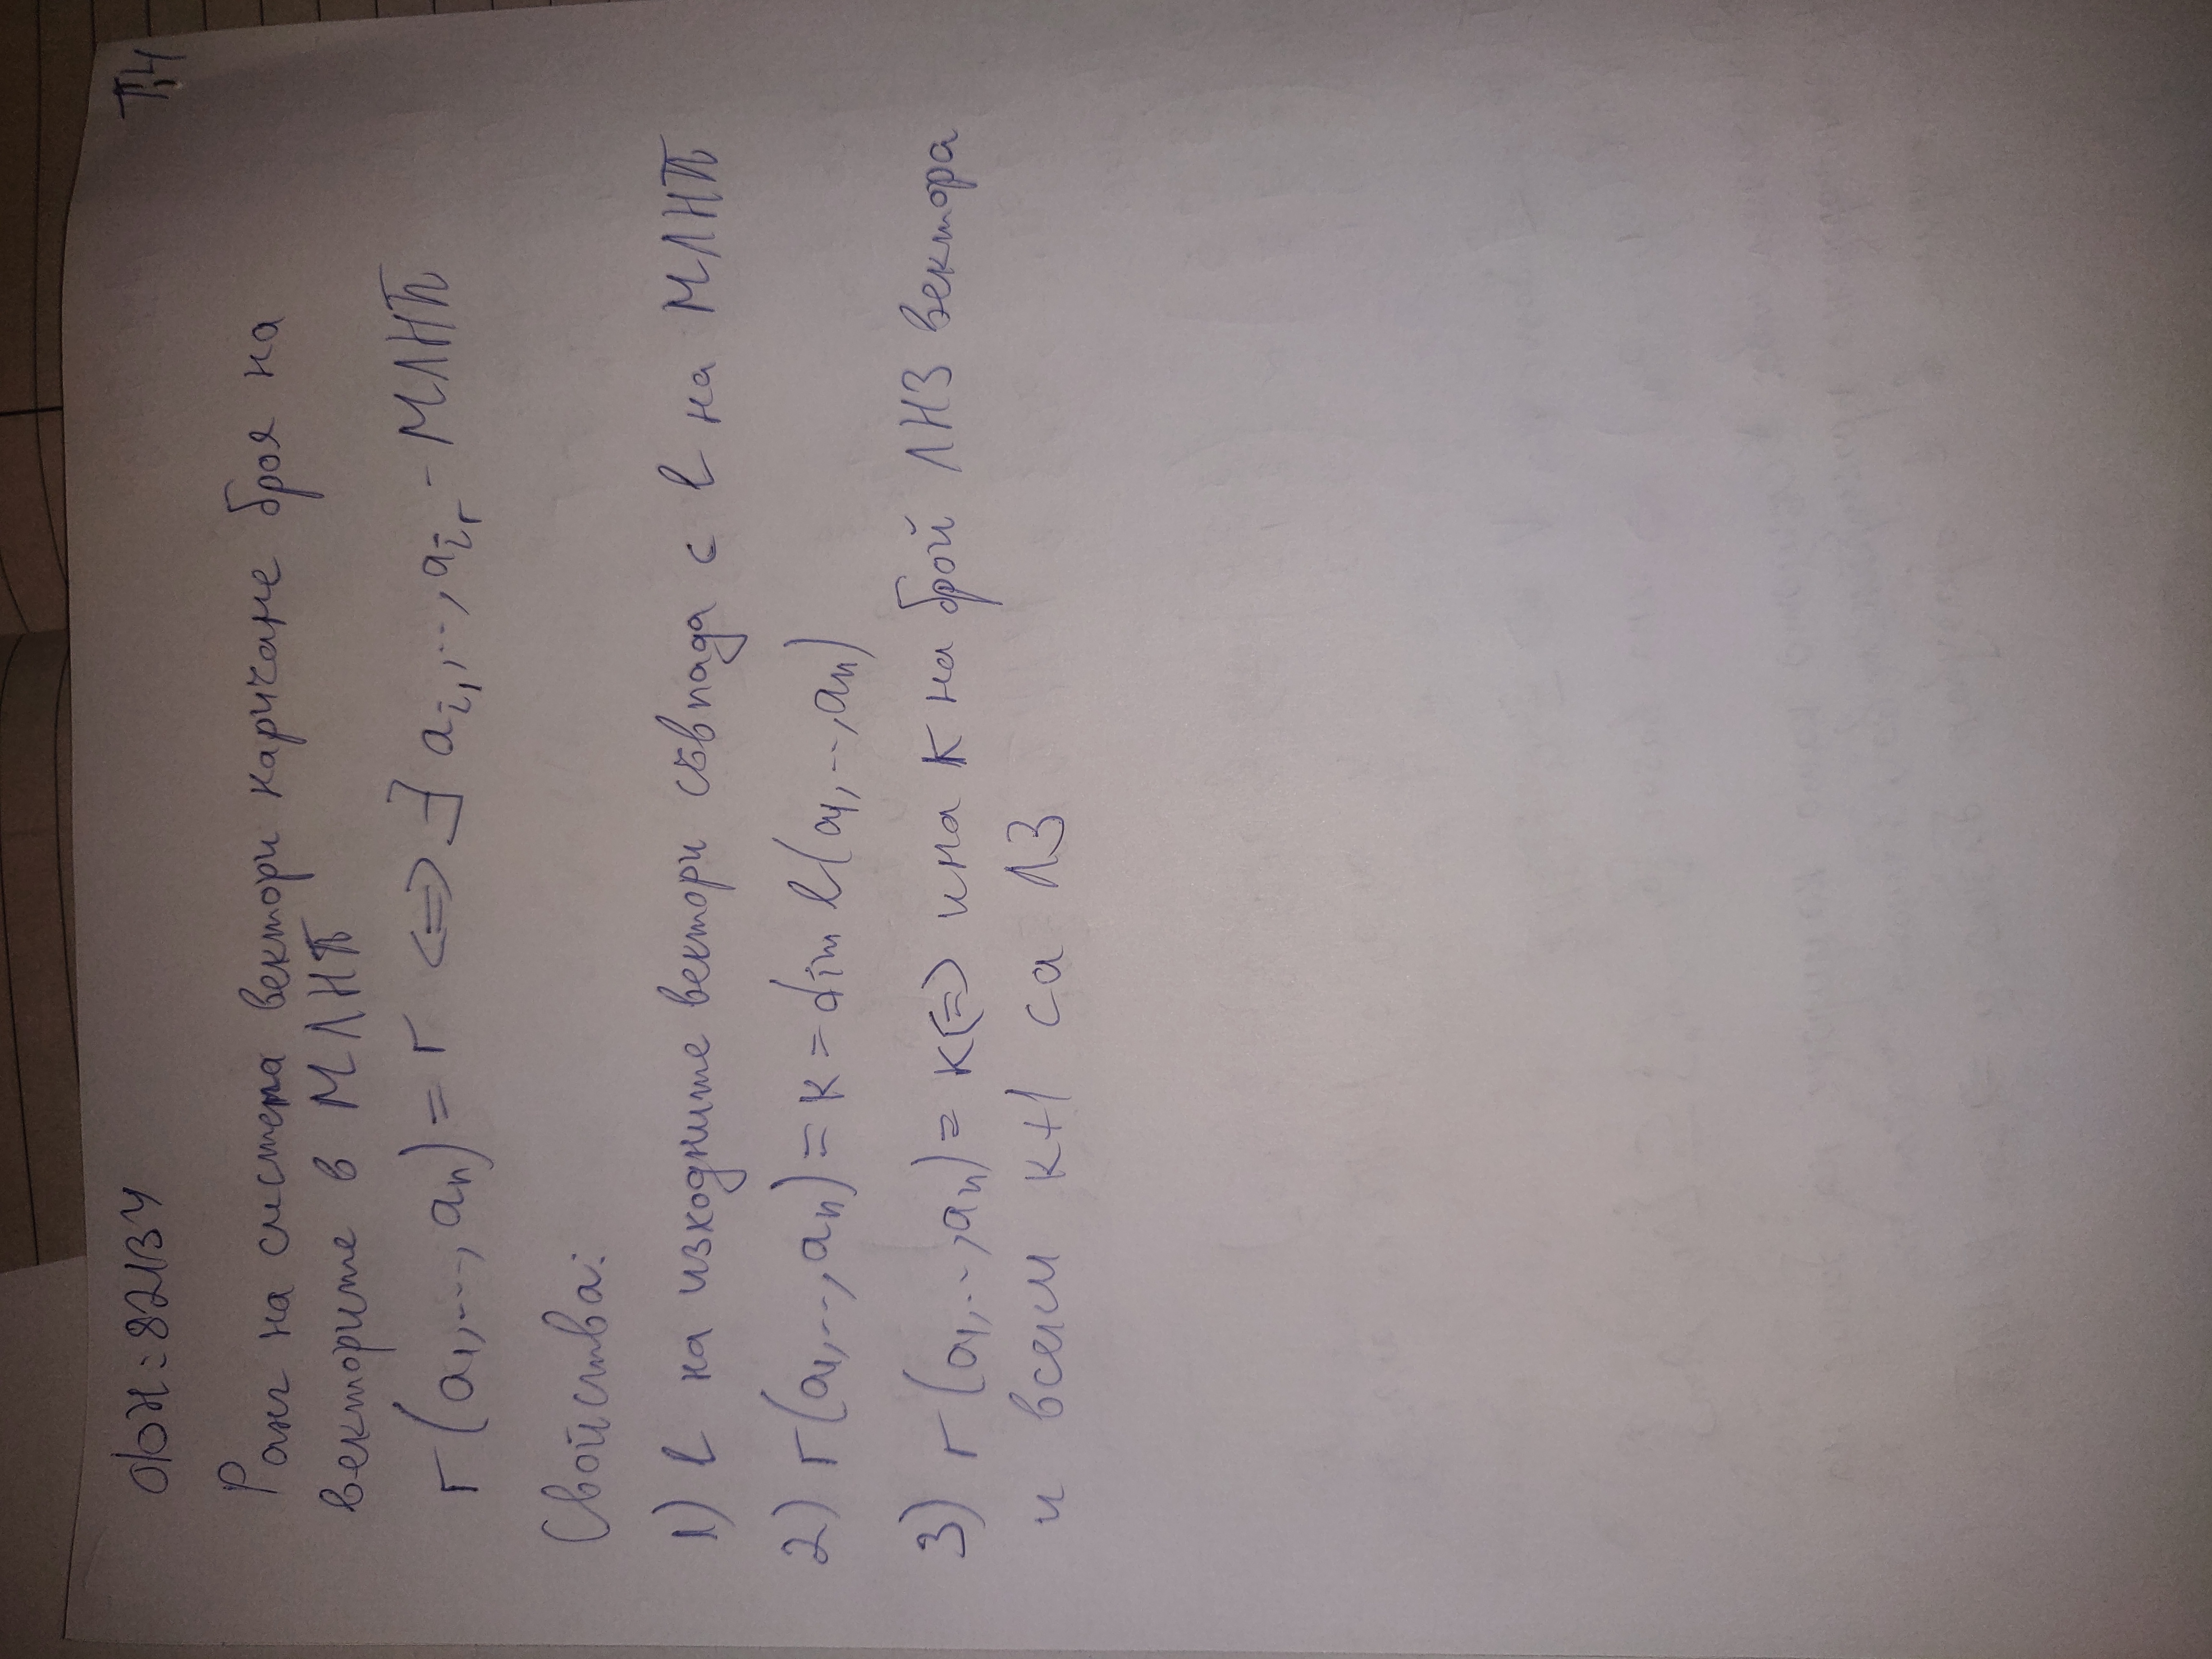 фн: 82134
Т.4
Ранг на система вектори наричаме броя на
векторите в МЛНП
r(a₁,...,aₙ) = r <=> ∃ aᵢ₁,..,aᵢᵣ - МЛНП
Свойства:
1) l на изходните вектори съвпада с l на МЛНП
2) r(a₁,..,aₙ) = k = dim l(a₁,..,aₙ)
3) r(a₁,..,aₙ) = k <=> има k на брой ЛНЗ вектора
и всеки k+1 са ЛЗ